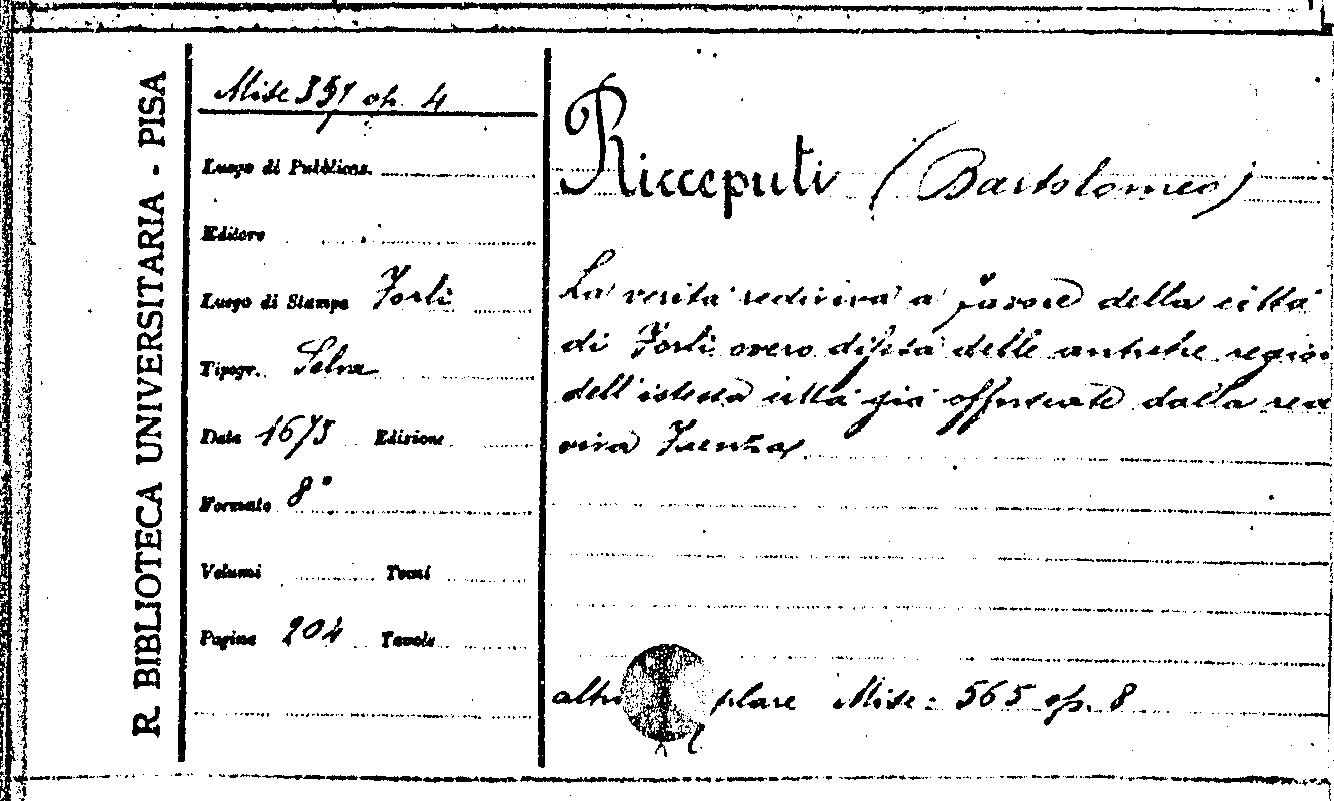 R. BIBLIOTECA UNIVERSITARIA - PISA
Misc 351 op. 4
Luogo di Pubblicaz.
Editore
Luogo di Stampa Forlì
Tipogr. Selva
Data 1673 Edizione
Formato 8°
Volumi Tomi
Pagine 204 Tavole
Ricceputi (Bartolomeo)
La verità rediviva a favore della città
di Forlì overo difesa delle antiche regio
dell'istessa città già offuscate dalla red
viva Faenza
altro plare Misc: 565 op. 8